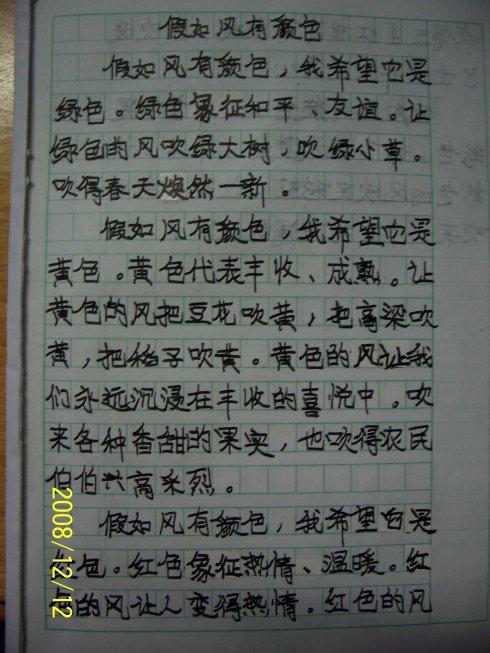 假如风有颜色
假如风有颜色，我希望它是
绿色。绿色象征和平、友谊。让
绿色的风吹绿大树，吹绿小草。
吹得春天焕然一新。
假如风有颜色，我希望它是
黄色。黄色代表丰收、成熟。让
黄色的风把豆花吹黄，把高粱吹
黄，把稻子吹黄。黄色的风让我
们永远沉浸在丰收的喜悦中。吹
来各种香甜的果实，也吹得农民
伯伯兴高采烈。
假如风有颜色，我希望它是
红色。红色象征热情、温暖。红
色的风让人变得热情。红色的风
2008/12/12